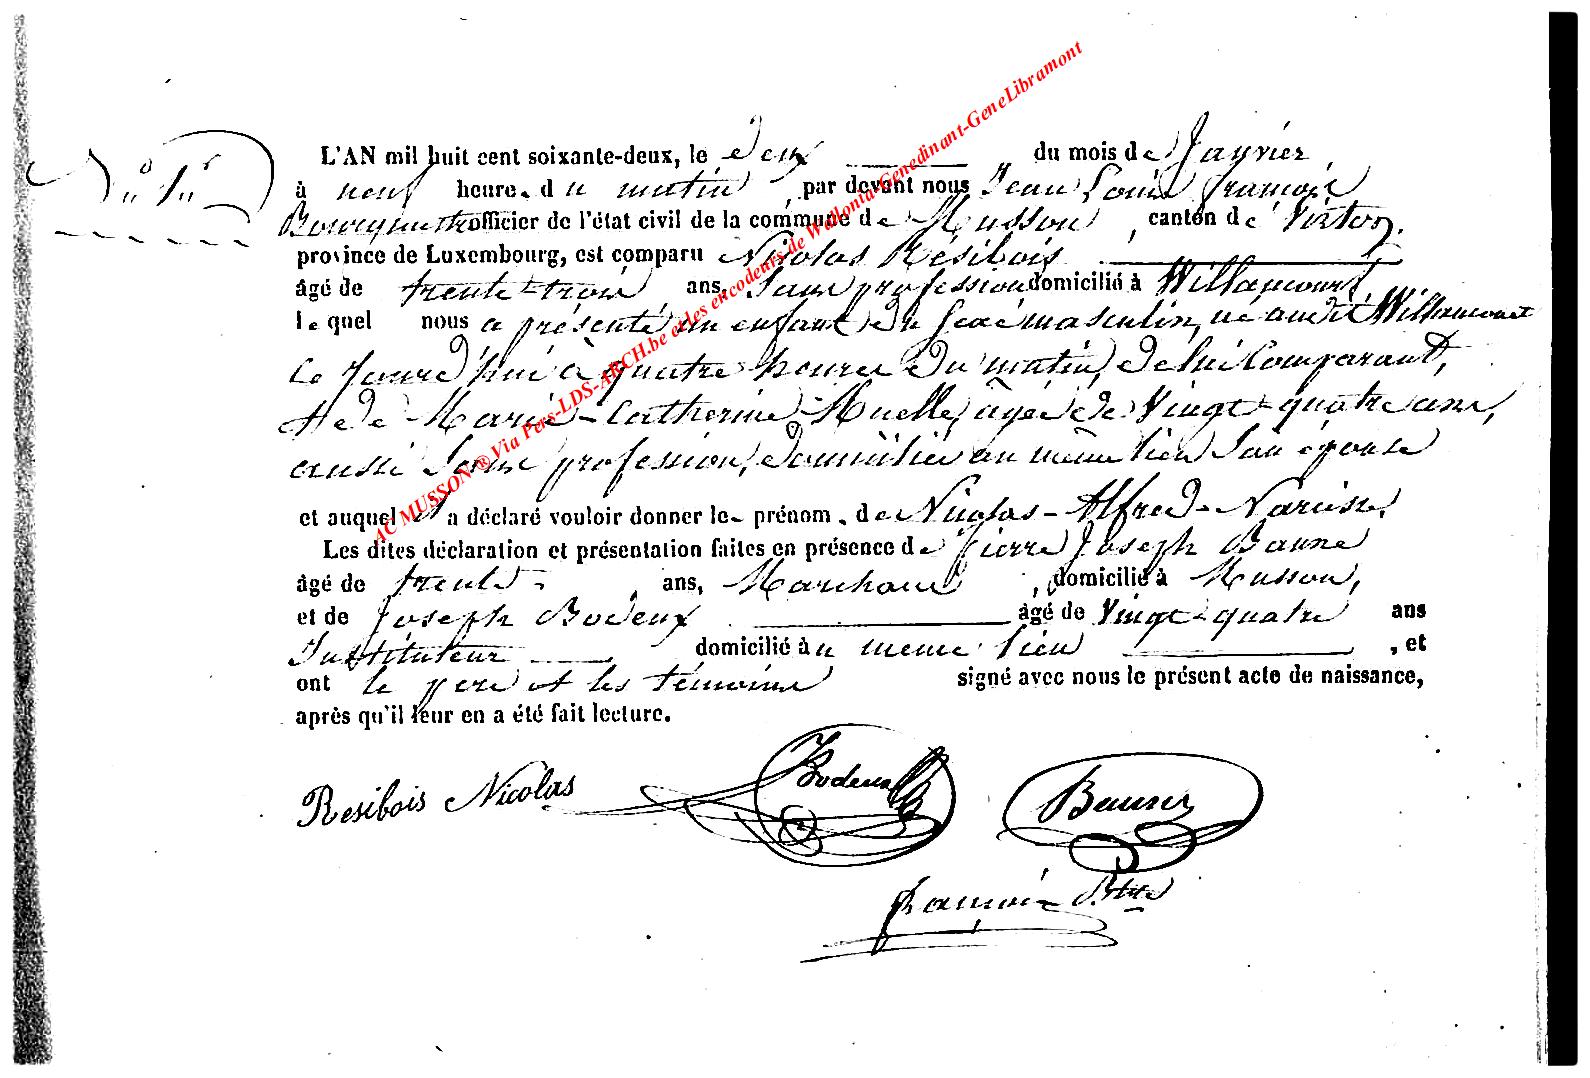 N° 1er
L'AN mil huit cent soixante-deux, le deux du mois de Janvier,
à neuf heure. du matin, par devant nous Jean Louis François
Bourguet officier de l'état civil de la commune de Musson, canton de Virton,
province de Luxembourg, est comparu Nicolas Résibois
âgé de trente-trois ans, sans profession domicilié à Willancourt
lequel nous a présenté un enfant du sexe masculin, né au dit Willancourt
ce jourd'hui à quatre heures du matin, de lui Comparant,
et de Marie-Catherine âgée de vingt-quatre ans,
aussi sans profession, domiciliée au même lieu son épouse
et auquel il a déclaré vouloir donner le prénom. de Nicolas-Alfred-Narcisse.
Les dites déclaration et présentation faites en présence de Pierre Joseph
âgé de trente ans, Marchand, domicilié à Musson,
et de Joseph Bodeux âgé de vingt-quatre ans
Instituteur domicilié au même lieu, et
ont le père et les témoins signé avec nous le présent acte de naissance,
après qu'il leur en a été fait lecture.
Resibois Nicolas
JBodeux
François
AC MUSSON ® Via Pers-LDS-ARCH.be et les encodeurs de Wallonia-Genedinant-GeneLibramont